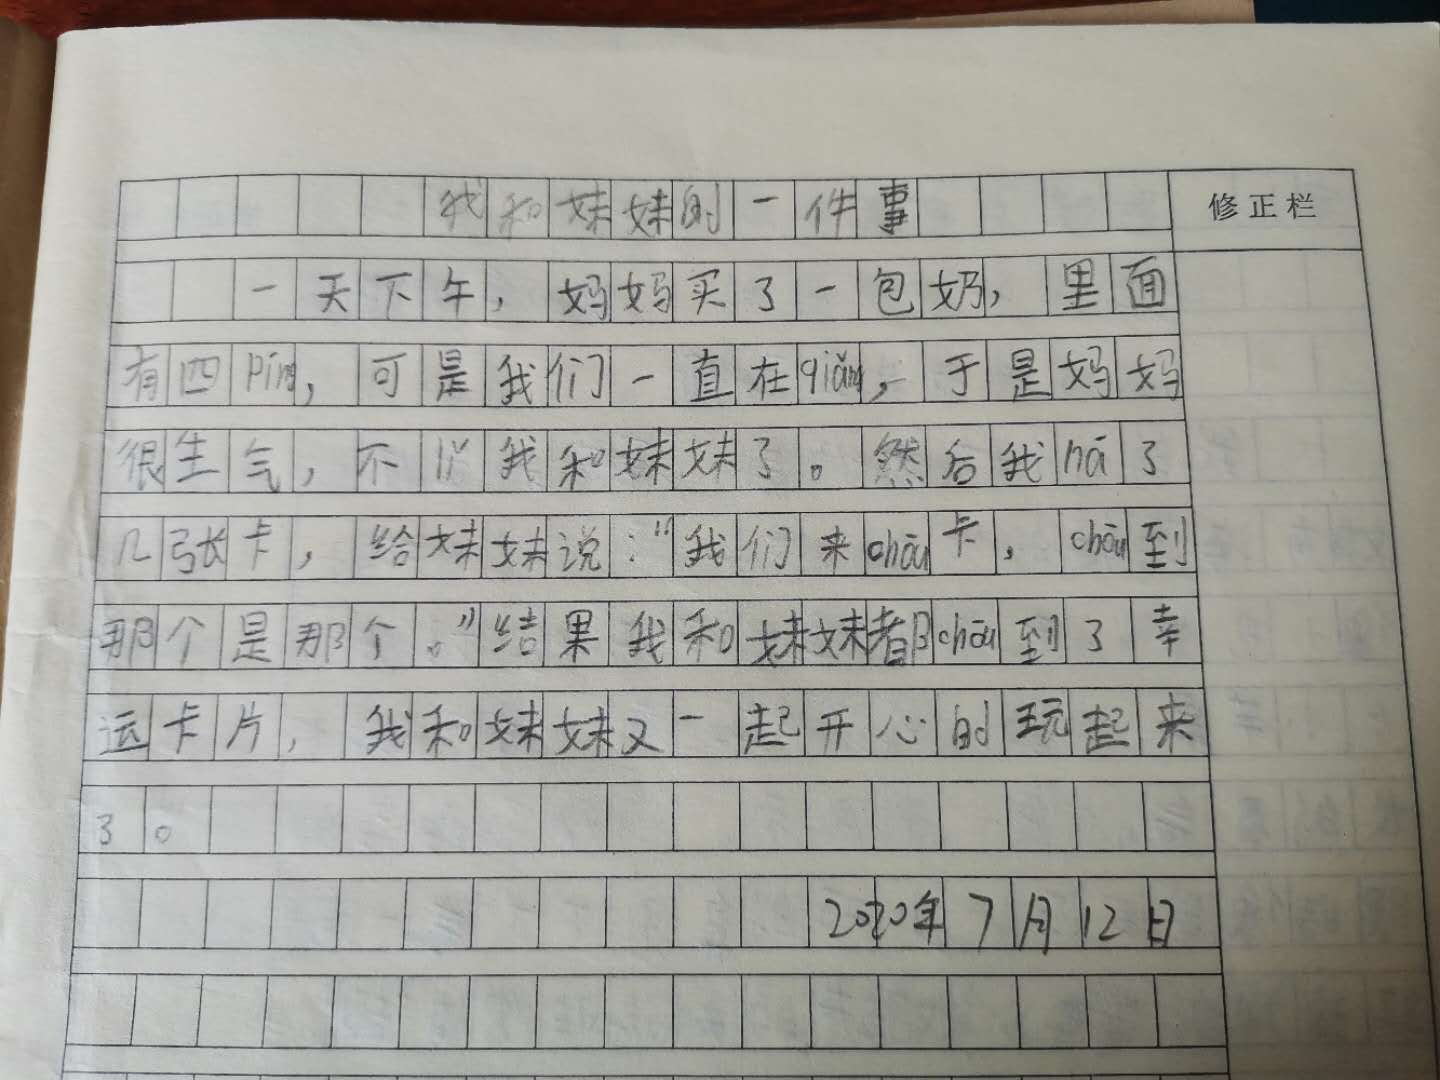 我和妹妹的一件事
修正栏
一天下午，妈妈买了一包奶，里面
有四píng，可是我们一直在qiǎng，于是妈妈
很生气，不让我和妹妹了。然后我ná了
几张卡，给妹妹说：“我们来chōu卡，chōu到
那个是那个。”结果我和妹妹都chōu到了幸
运卡片，我和妹妹又一起开心的玩起来
了。
2020年7月12日